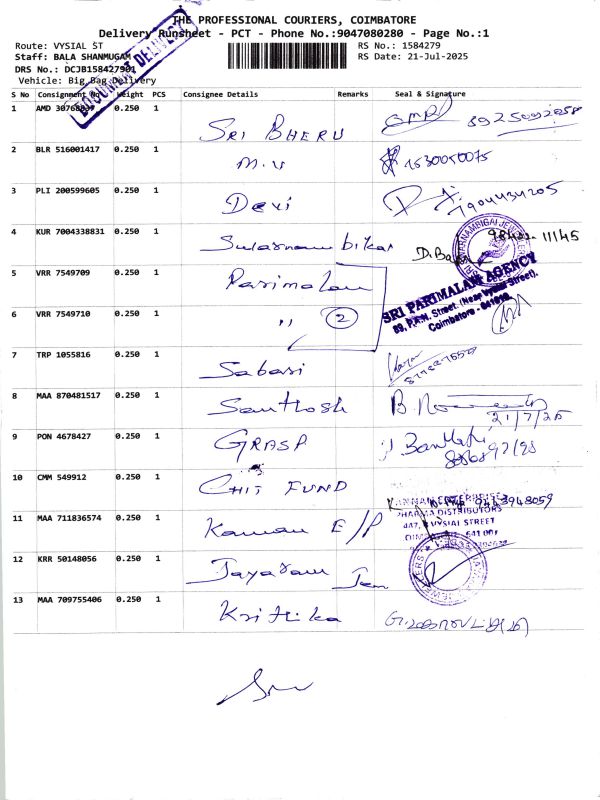 THE PROFESSIONAL COURIERS, COIMBATORE
Delivery Runsheet - PCT - Phone No.:9047080280 - Page No.:1
Route: VYSIAL ST
RS No.: 1584279
Staff: BALA SHANMUGAM
RS Date: 21-Jul-2025
DRS No.: DCJB158427901
Vehicle: Big Bag Delivery
DOCUMENT DELIVERY
S No Consignment No Weight PCS Consignee Details Remarks Seal & Signature
1 AMD 0.250 1 SRI BHERU
2 BLR 516001417 0.250 1 M.V
3 PLI 200599605 0.250 1 Devi 7904434205
4 KUR 7004338831 0.250 1
5 VRR 7549709 0.250 1 Parimalam
SRI PARIMALAM AGENCY
89, P.A.N. Street, (Near Vysial Street),
Coimbatore
6 VRR 7549710 0.250 1 " 2
7 TRP 1055816 0.250 1 Sabari
8 MAA 870481517 0.250 1 Santhosh
21/7/25
9 PON 4678427 0.250 1 GRASP
10 CMM 549912 0.250 1 CHIT FUND 9443948059
KANNAN ENTERPRISES
PHARMA DISTRIBUTORS
VYSIAL STREET
11 MAA 711836574 0.250 1 Kannan E/P
12 KRR 50148056 0.250 1 Jayaram Jem
13 MAA 709755406 0.250 1 Krithika